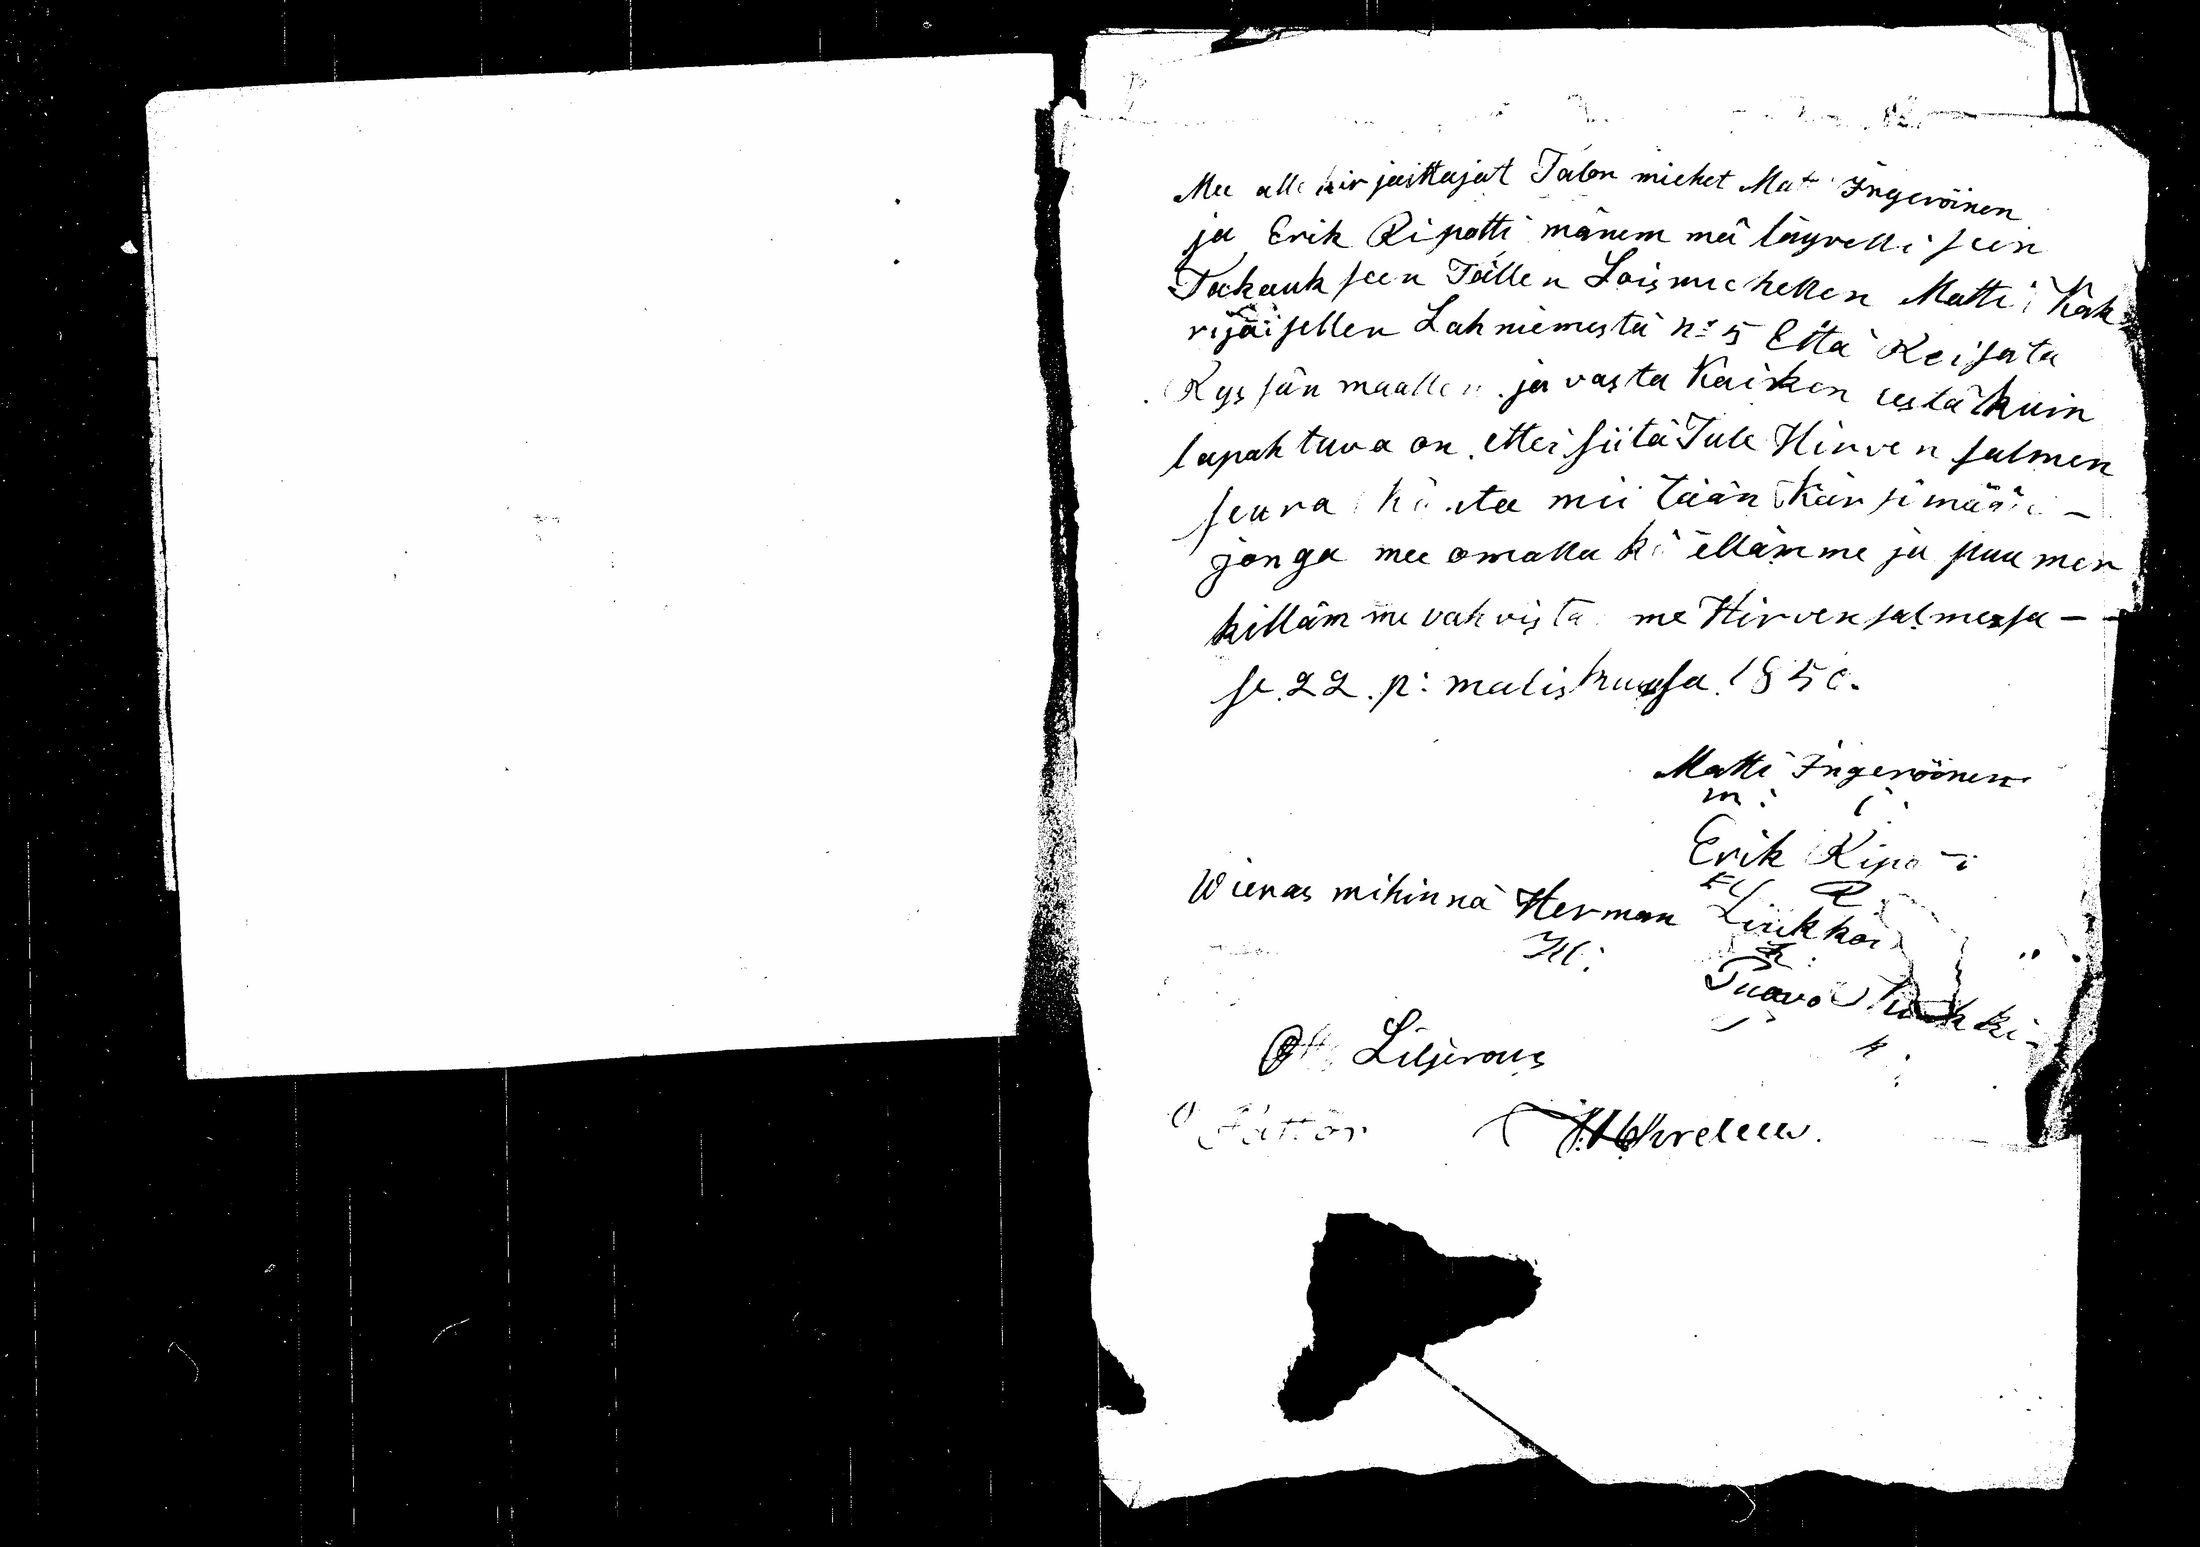 Mee alle kirjaittajat Talon miehet Mat Ingeröinen
ja Erik Ripatti mänem mä läyvelli seen
Takauk seen Tällen Loismiehellen Matti Kak
rijäisellen Lahniemestä No 5 Että Reisata
Ryssän maallen ja vasta Kaiken estä kuin
tapahtuva on ettei siitä Tule Hirven salmen
seura mii tään Kärsimää
jonga mee omalla ellämme ja puu mer
killämme vahvista me Hirvensalmessa —
se 22 p: maliskuusa 185
Matti Ingeröinen
m: i:
Erik
E R
Wieras mihinnä Herman Liukkoi
H:
Paavo
P k:
Liljerous